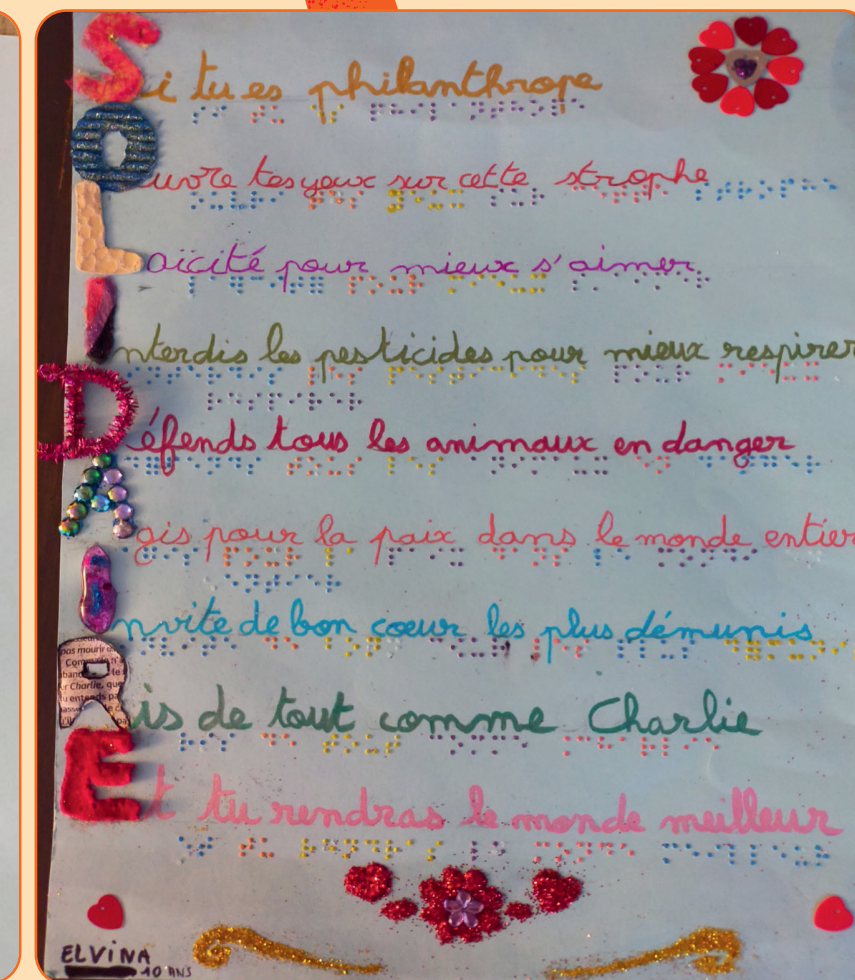 Si tu es philanthrope
Ouvre tes yeux sur cette strophe
Laïcité pour mieux s'aimer
Interdis les pesticides pour mieux respirer
Défends tous les animaux en danger
Agis pour la paix dans le monde entier
Invite de bon cœur les plus démunis
Ris de tout comme Charlie
Et tu rendras le monde meilleur
ELVINA
10 ANS